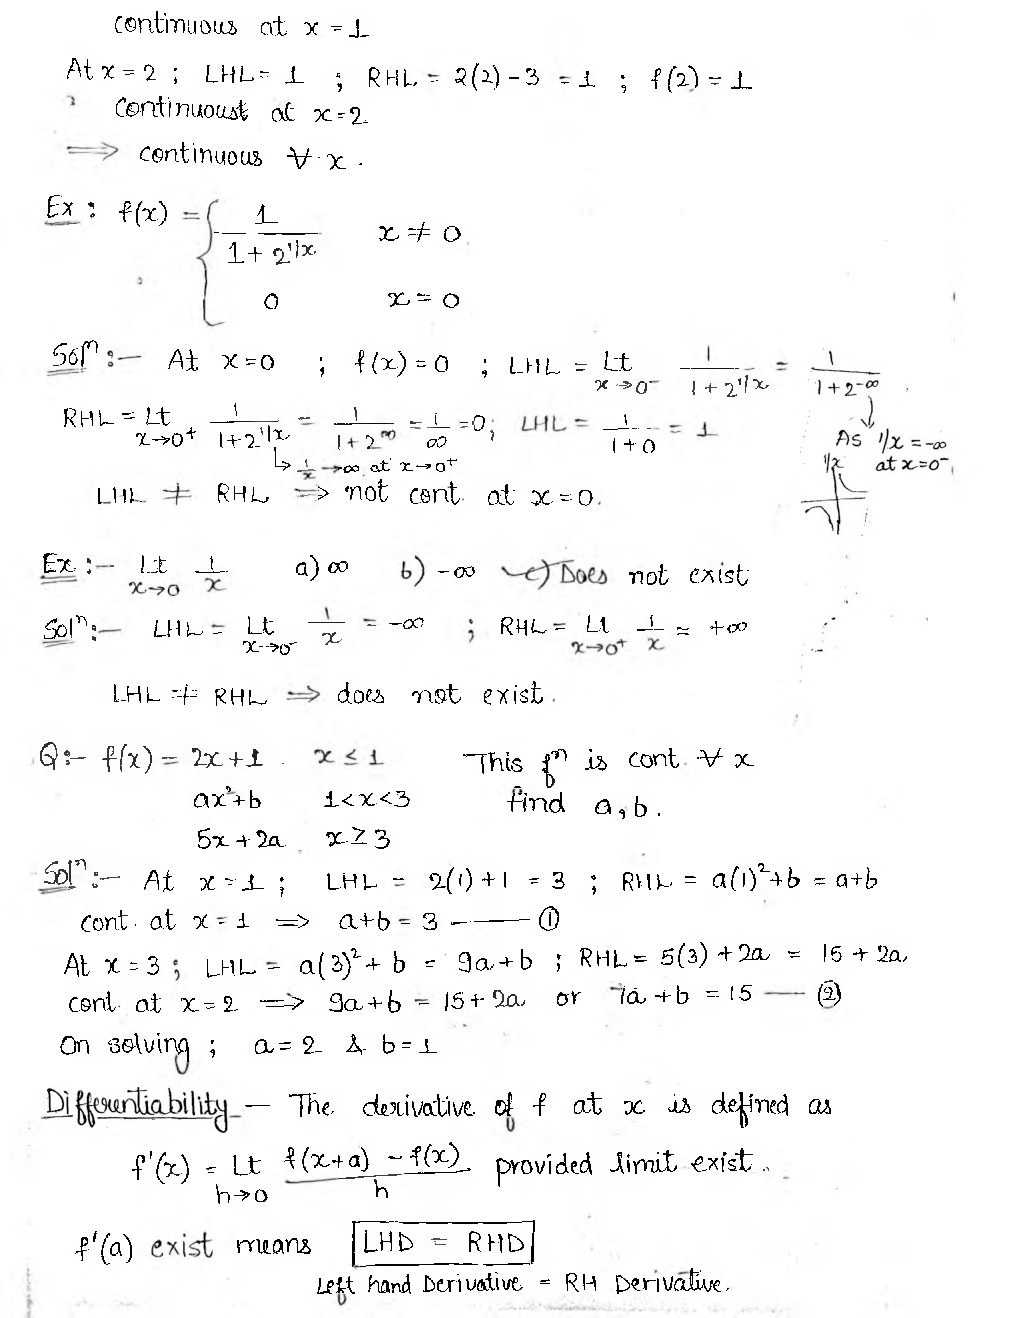 continuous at x = 1
At x = 2 ; LHL = 1 ; RHL = 2(2) - 3 = 1 ; f(2) = 1
continuoust at x = 2
⟹ continuous ∀ x .
Ex : f(x) = { 1/(1 + 2^(1/x)) x ≠ 0
0 x = 0
Solⁿ :— At x = 0 ; f(x) = 0 ; LHL = Lt x→0⁻ 1/(1 + 2^(1/x)) = 1/(1 + 2^(-∞))
RHL = Lt x→0⁺ 1/(1 + 2^(1/x)) = 1/(1 + 2^∞) = 1/∞ = 0; LHL = 1/(1 + 0) = 1
As 1/x = -∞ at x = 0⁻
↳ 1/x → ∞ at x → 0⁺
1/x
LHL ≠ RHL ⟹ not cont. at x = 0.
Ex :— Lt x→0 1/x a) ∞ b) -∞ ✓c) Does not exist
Solⁿ :— LHL = Lt x→0⁻ 1/x = -∞ ; RHL = Lt x→0⁺ 1/x = +∞
LHL ≠ RHL ⟹ does not exist.
Q :- f(x) = 2x + 1 x ≤ 1 This fⁿ is cont. ∀ x
ax² + b 1 < x < 3 find a, b.
5x + 2a x ≥ 3
Solⁿ :— At x = 1 ; LHL = 2(1) + 1 = 3 ; RHL = a(1)² + b = a + b
cont. at x = 1 ⟹ a + b = 3 ——— ①
At x = 3 ; LHL = a(3)² + b = 9a + b ; RHL = 5(3) + 2a = 15 + 2a
cont. at x = 2 ⟹ 9a + b = 15 + 2a or 7a + b = 15 — ②
On solving ; a = 2 & b = 1
Differentiability — The derivative of f at x is defined as
f'(x) = Lt h→0 (f(x+a) - f(x))/h provided limit exist.
f'(a) exist means LHD = RHD
Left hand Derivative = RH Derivative.